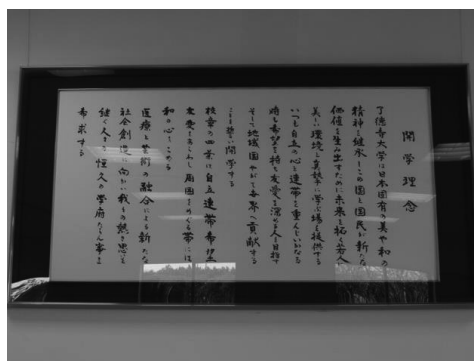 開学理念
了徳寺大学は日本固有の美や和の
精神を継承しこの国と国民が新たな
価値を生み出すために未来を拓く若人へ
美しい環境と真摯に学ぶ場を提供する
いつも自立の心連帯を重んじいかなる
時も希望を持ち友愛を深める人を目指す
そして地域国やがて世界へ貢献する
ことを誓い開学する
校章の四葉に自立連帯希望
友愛をあらわし周囲をめぐる帯には
和の心をこめる
医療と芸術の融合による新たな
社会創造に向かい我らの熱き思いを
継ぐ人と恒久の学府たらん事を
希求する